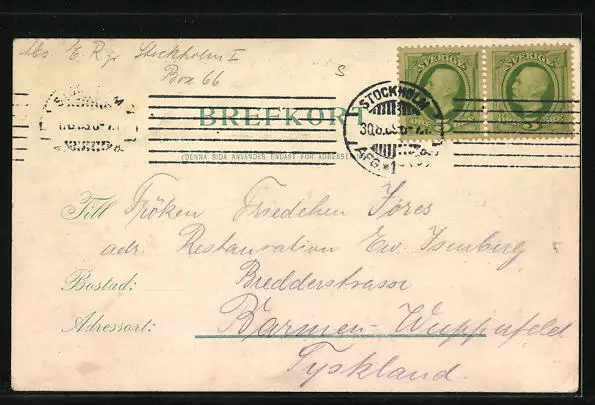 Abs. E. R. Stockholm I
Box 66
S
SVERIGE SVERIGE
5 ÖRE 5
STOCKHOLM
30.8.03
AFG. *1
BREFKORT
(DENNA SIDA ANVÄNDES ENDAST FÖR ADRESSEN)
Till Fröken Friedchen Jores
adr. Restauration Ew. Isenburg
Bostad: Bredderstrasse
Adressort: Barmen-Wupperfeld
Tyskland.